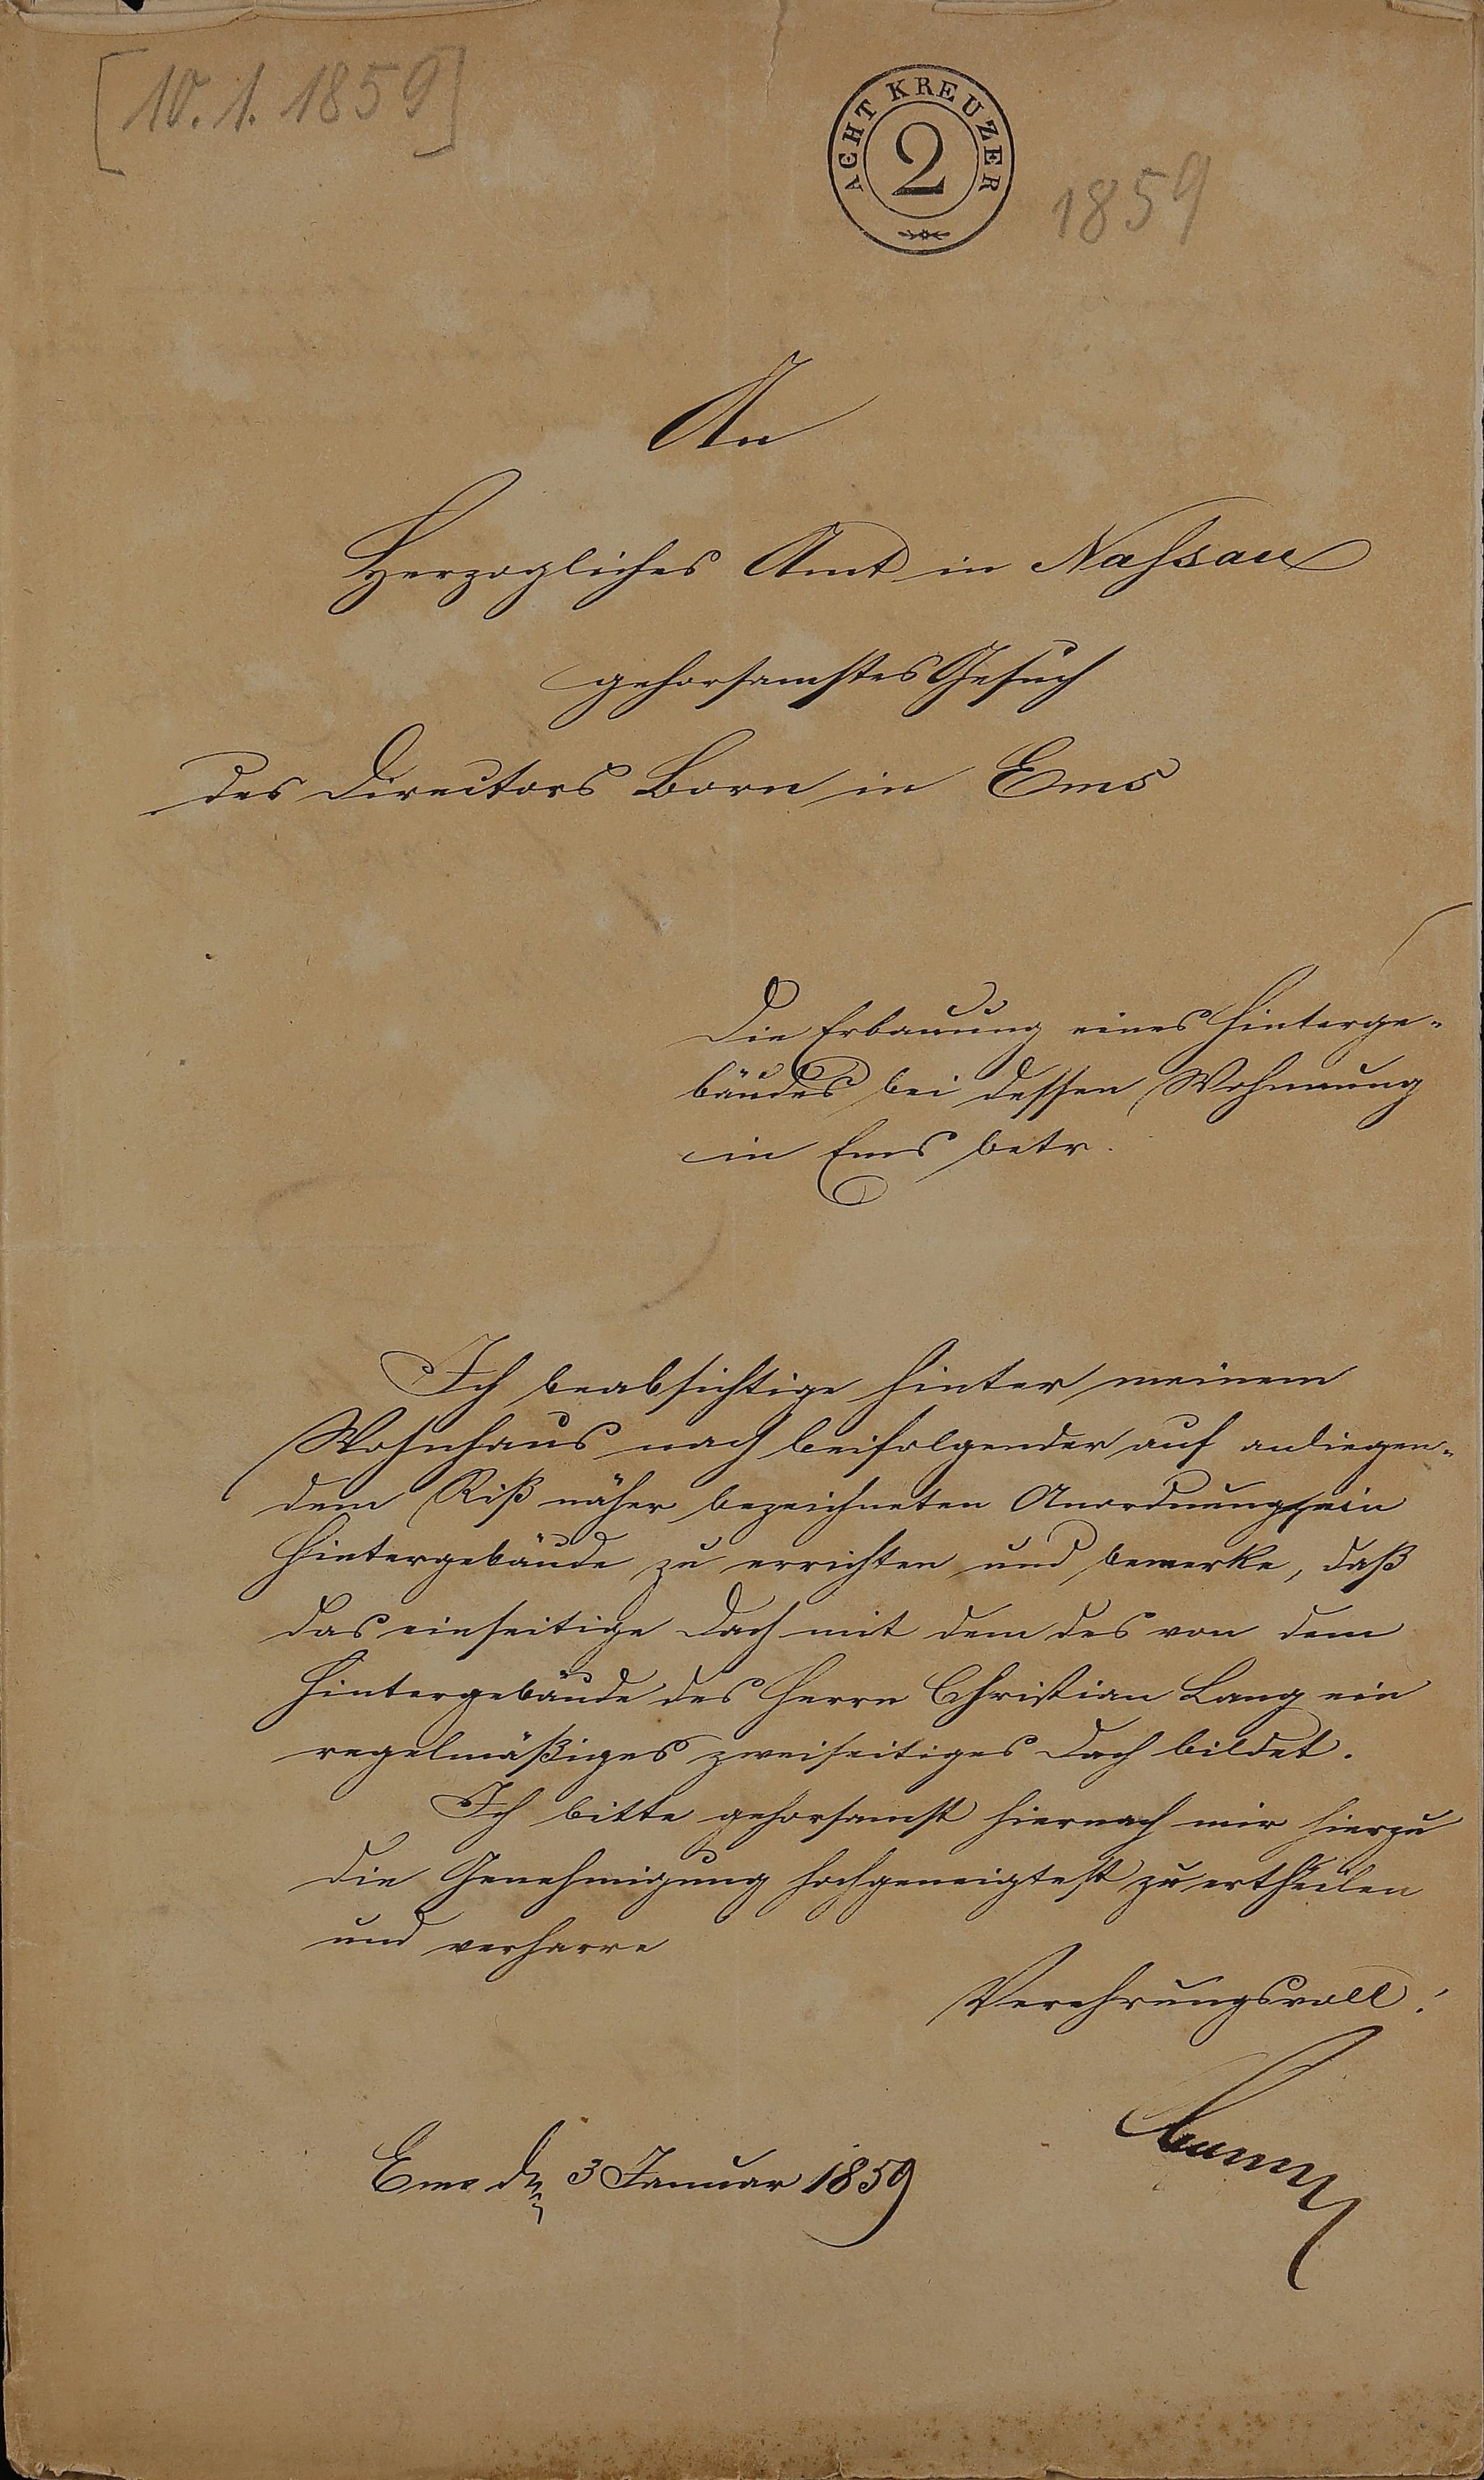 [10. 1. 1859]
ACHT KREUZER
2
1859
An
Herzogliches Amt in Nassau
gehorsamstes Gesuch
des Directors Born in Ems
Die Erbauung eines Hinterge-
bäudes bei dessen Wohnung
in Ems betr.
Ich beabsichtige hinter meinem
Wohnhaus nach beifolgender auf anliegen-
dem Riß näher bezeichneten Anordnung ein
Hintergebäude zu errichten und bemerke, daß
das einseitige Dach mit dem des von dem
Hintergebäude des Herrn Christian Lang ein
regelmäßiges zweiseitiges Dach bildet.
Ich bitte gehorsamst hiernach mir hierzu
die Genehmigung hochgeneigtest zu ertheilen
und verharre
Verehrungsvoll!
Ems dn 3 Januar 1859